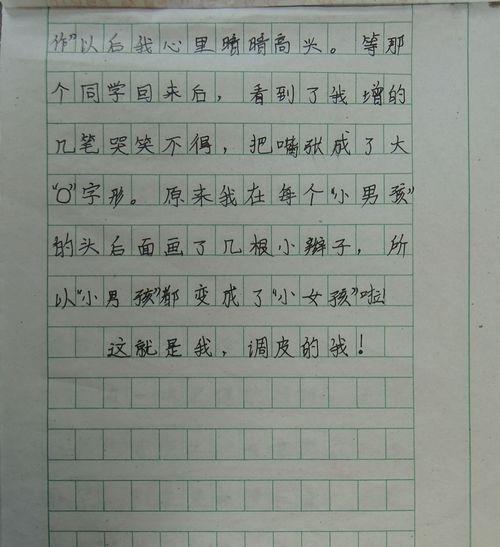 作”以后我心里暗暗高兴。等那
个同学回来后，看到了我增的
几笔哭笑不得，把嘴张成了大
“O”字形。原来我在每个“小男孩”
的头后面画了几根小辫子，所
以“小男孩”都变成了“小女孩”啦！
这就是我，调皮的我！